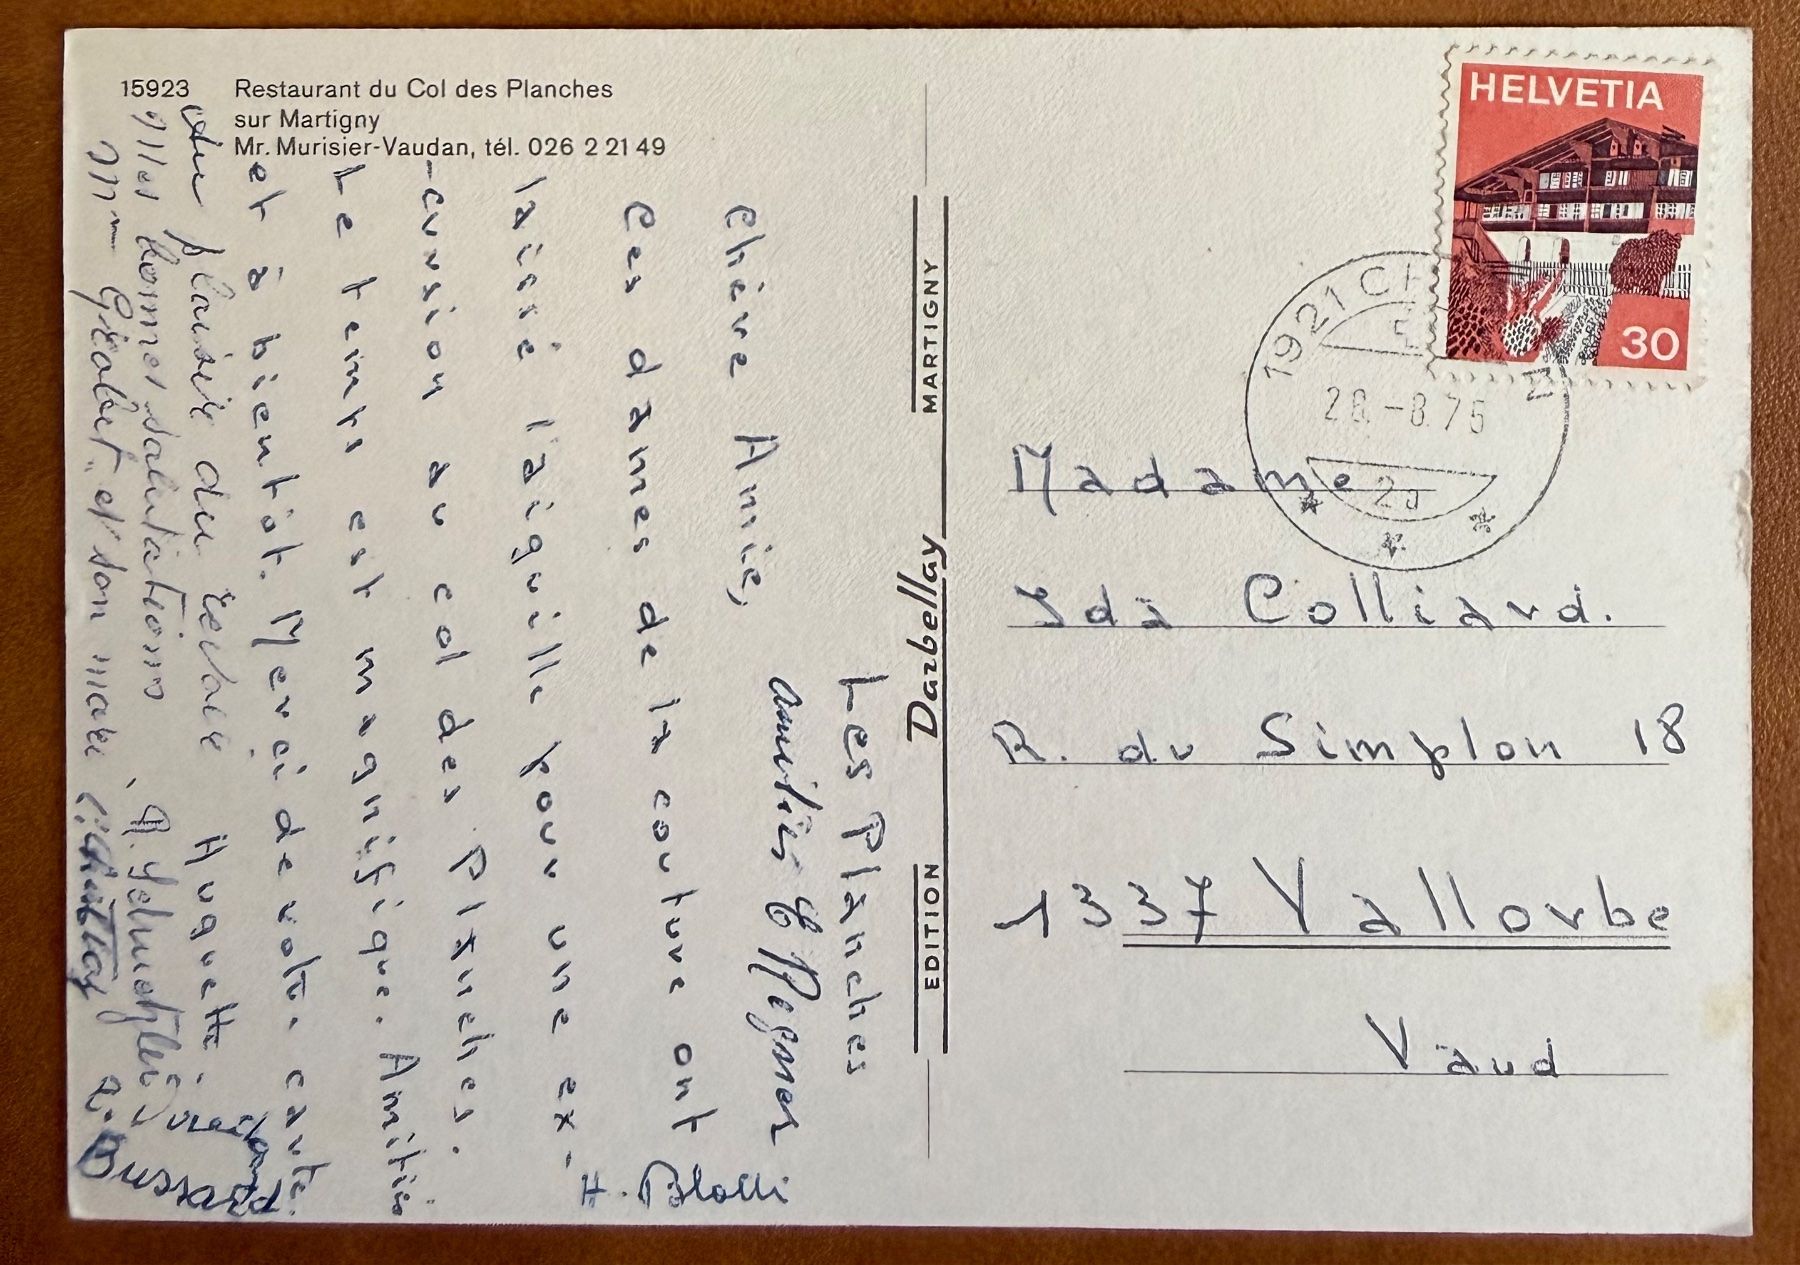 15923 Restaurant du Col des Planches
sur Martigny
Mr. Murisier-Vaudan, tél. 026 2 21 49
Les Planches
amitiés
Chère Amie,
Ces dames de la couture ont
laissé l'aiguille pour une ex-
-cursion au col des Planches.
Le temps est magnifique. Amitiés
et à bientôt. Merci de votre carte.
Au plaisir du revoir Huguette.
Mes bonnes salutations
Mme et son mari
H.
EDITION Darbellay MARTIGNY
HELVETIA
30
1921 CH
28.-8.75
Madame
Ida Colliard.
R. du Simplon 18
1337 Vallorbe
Vaud